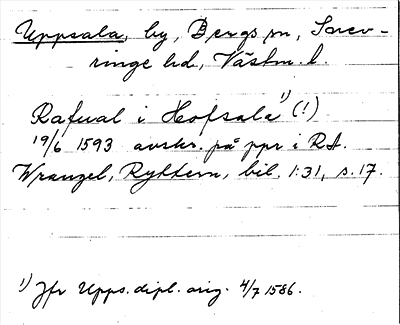 Uppsala, by, Bergs sn, Snev-
ringe hd, Västm. l.
Rafual i Hofsala ¹) (!)
19/6 1593 avskr. på ppr i RA.
Wrangel, Ryttern, bil. 1:31, s. 17.
¹) Jfr Upps. dipl. orig. 4/7 1586.